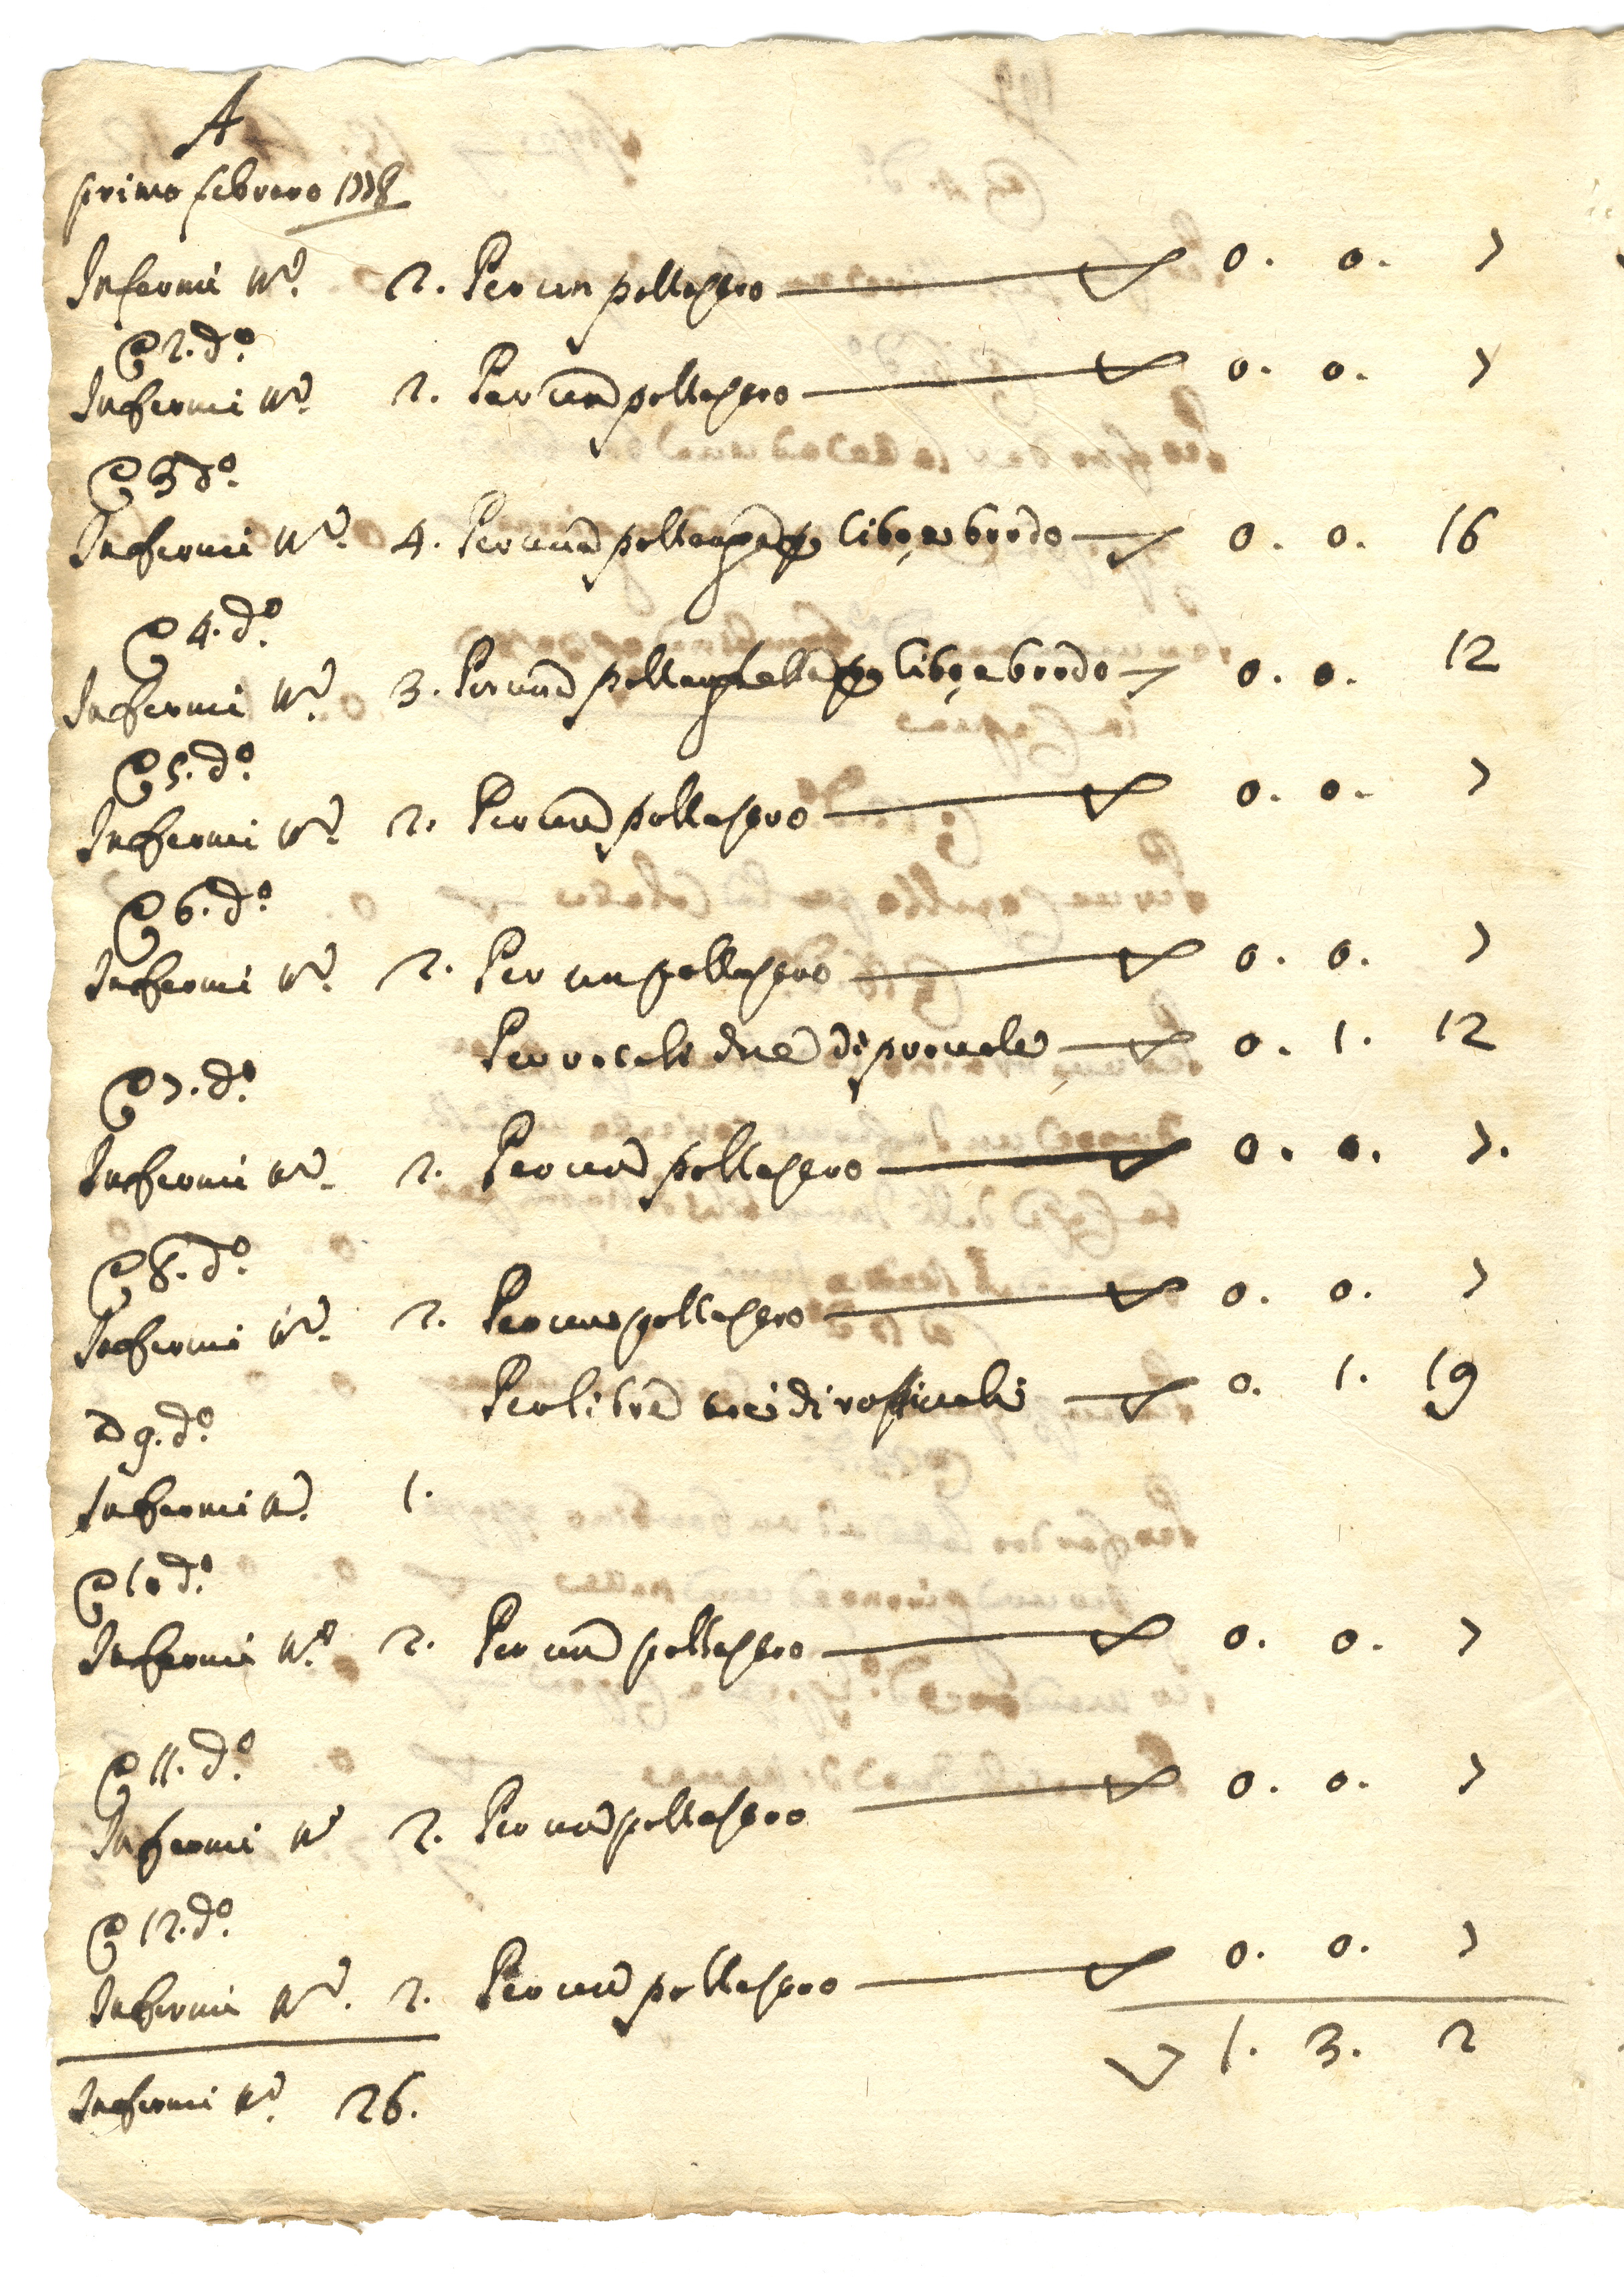 A
primo febraro 1778
Infermi n.º 2. Per un pollastro 0. 0. 7
E 2. dº
Infermi nº. 2. Per un pollastro 0. 0. 7
E 3 dº.
Infermi nº. 4. Per una pollanca p cibo, e brodo 0. 0. 16
E 4. dº.
Infermi nº. 3. Per una pollanchella p cibo, e brodo 0. 0. 12
E 5. dº.
Infermi nº. 2. Per un pollastro 0. 0. 7
E 6. dº.
Infermi nº. 2. Per un pollastro 0. 0. 7
Per rotoli due di 0. 1. 12
E 7. dº.
Infermi nº. 2. Per un pollastro 0. 0. 7.
E 8. dº.
Infermi nº. 2. Per un pollastro 0. 0. 7
Per libre tre di 0. 1. 19
A 9. dº.
Infermi nº. 1.
E 10 dº.
Infermi nº. 2. Per un pollastro 0. 0. 7
E 11. dº.
Infermi nº 2. Per un pollastro 0. 0. 7
E 12. dº.
Infermi nº. 2. Per un pollastro 0. 0. 7
1. 3. 2
Infermi nº. 26.